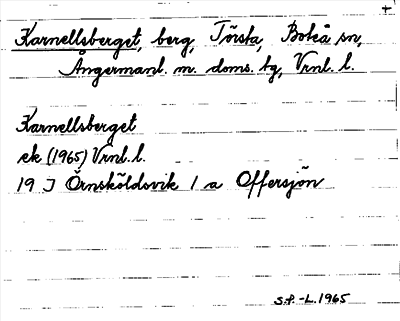 +
Karnellsberget, berg, Törsta, Boteå sn,
Ångermanl. m. doms. hg, Vrnl. l.
Karnellsberget
ek (1965) Vrnl. l.
19 J Örnsköldsvik 1 a Offersjön
S.F.-L. 1965